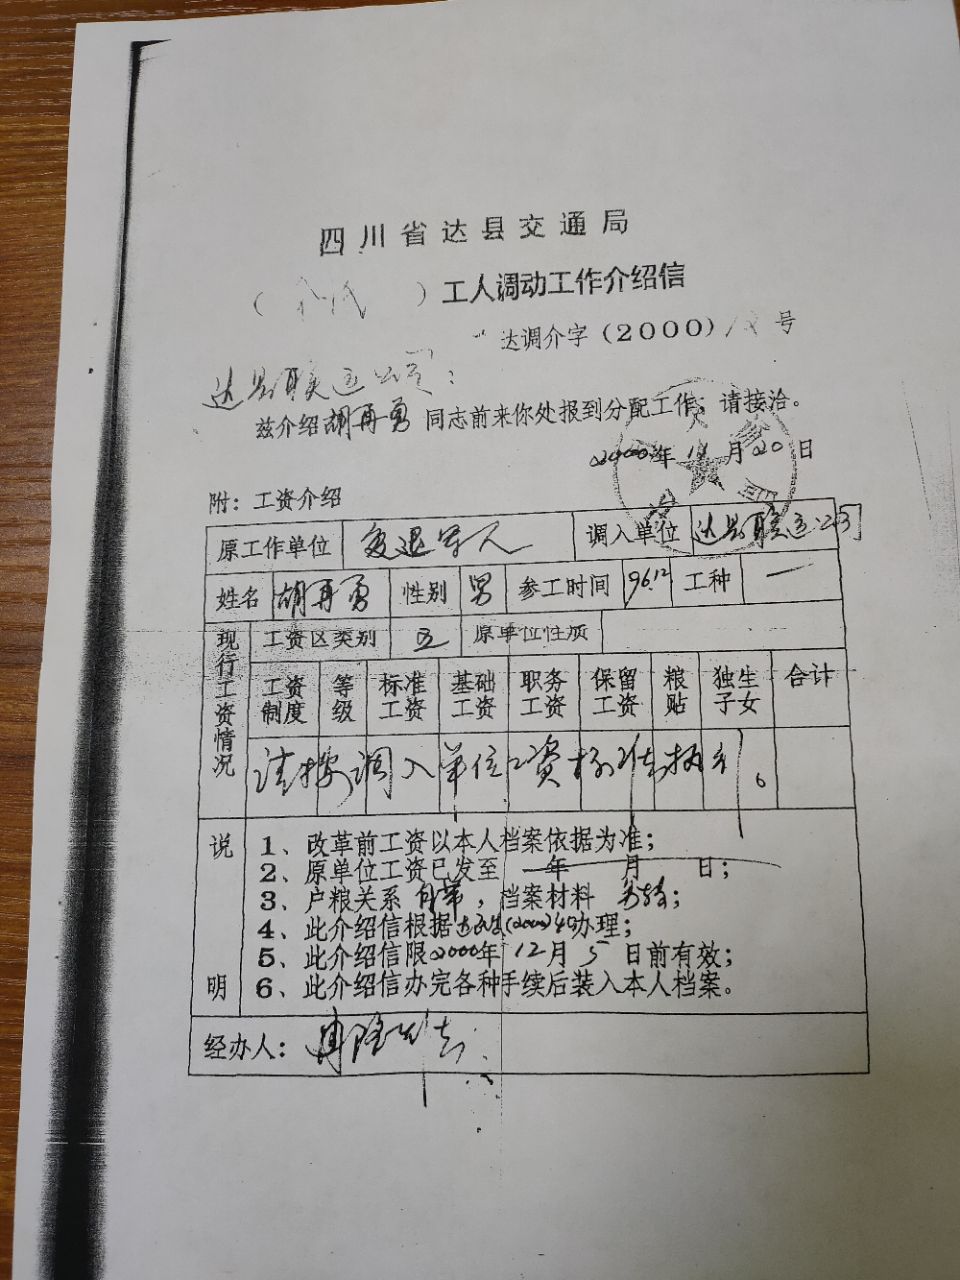 四川省达县交通局
（ ）工人调动工作介绍信
达调介字（2000） 号
达县联运公司：
兹介绍胡再勇同志前来你处报到分配工作，请接洽。
2000年11月20日
附：工资介绍
原工作单位 复退军人 调入单位 达县联运公司
姓名 胡再勇 性别 男 参工时间 96.12 工种 一
现行工资情况 工资区类别 五 原单位性质
工资制度 等级 标准工资 基础工资 职务工资 保留工资 粮贴 独生子女 合计
请按调入单位工资标准执行。
说明
1、改革前工资以本人档案依据为准；
2、原单位工资已发至 年 月 日；
3、户粮关系 自带，档案材料 ；
4、此介绍信根据 (2000) 办理；
5、此介绍信限2000年12月5日前有效；
6、此介绍信办完各种手续后装入本人档案。
经办人：